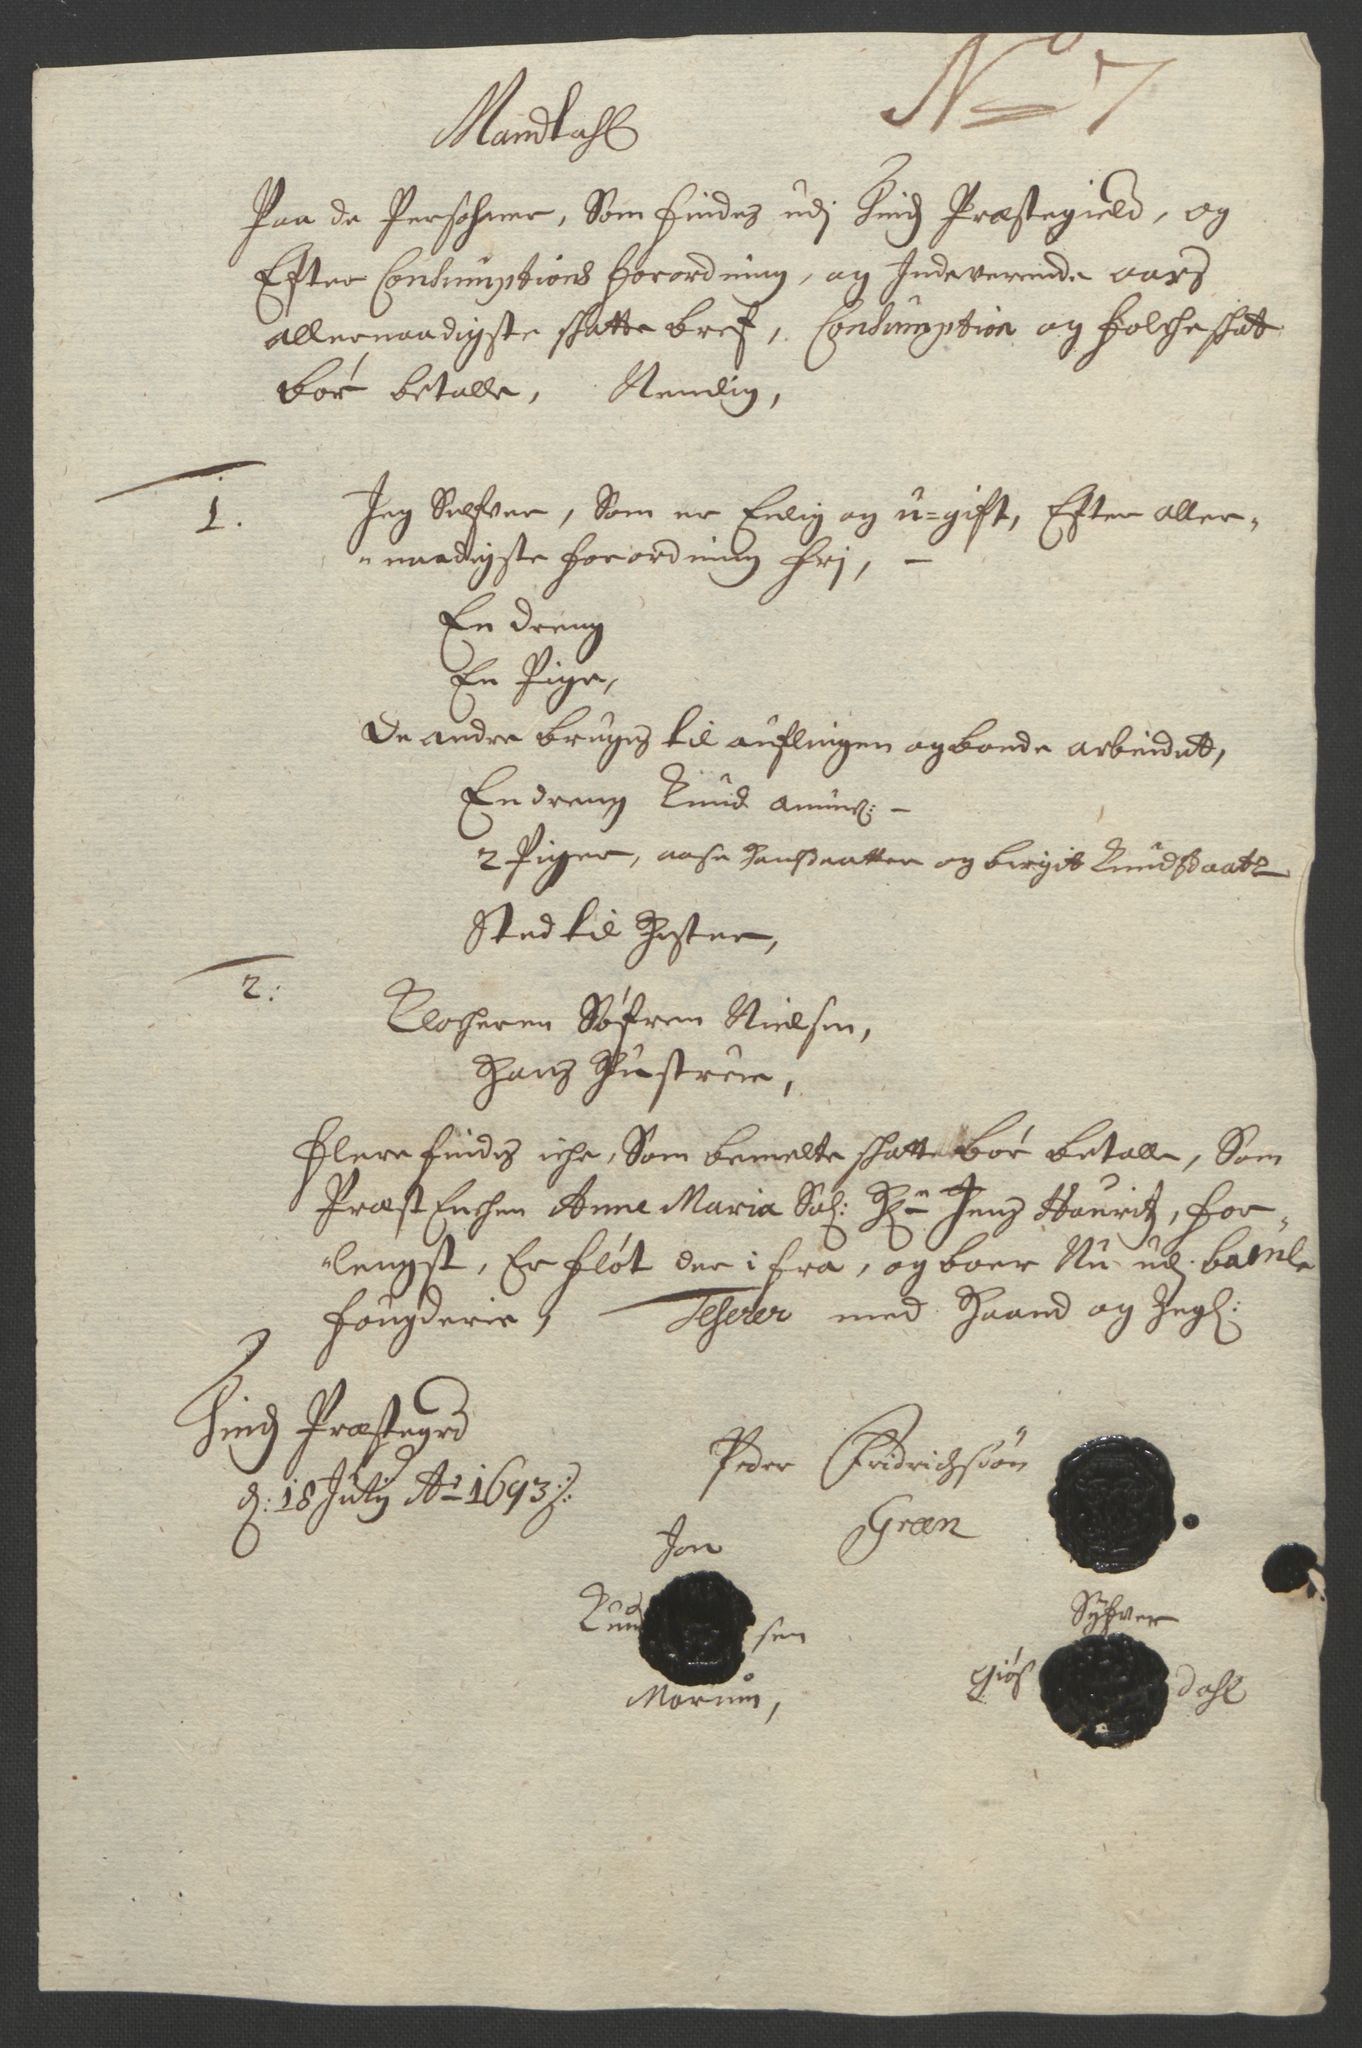 No 7
Mandtahl
Paa de Persohner, Som findes udj Hinds Præstegield, og
Efter Consumptions forordning, og Indeverende aars
allernaadigste skatte bref, Consumption og folcheskat
bør betalle, Nemlig,
1. Jeg Selfver, Som er Enlig og u=gift, Efter aller-
naadigste forordning frj, -
En dreng
En Pige,
De andre bruges til auflingen og bonde arbeidet,
En dreng Knud amun: -
2 Piger, aase Hansdaatter og birgit Knudsdaatr
Sted til Hester,
2: Klocheren Søfren Nielsen,
Hans Hustrue,
Flere findes iche, Som bemelte skatte bør betalle, Som
Præst Enchen Anne Maria Sal: Hr Jens Hauritz, for-
lengst, Er fløt der i fra, og boer Nu udj bamle
fougderie, Testerer med Haand og Zegl:
Hinds Præstegrd
d: 18 July Ao 1693:
Peder Fridrichssøn
Græn
Jon
Knud sen
Morum,
Syfver
Giøs dahl